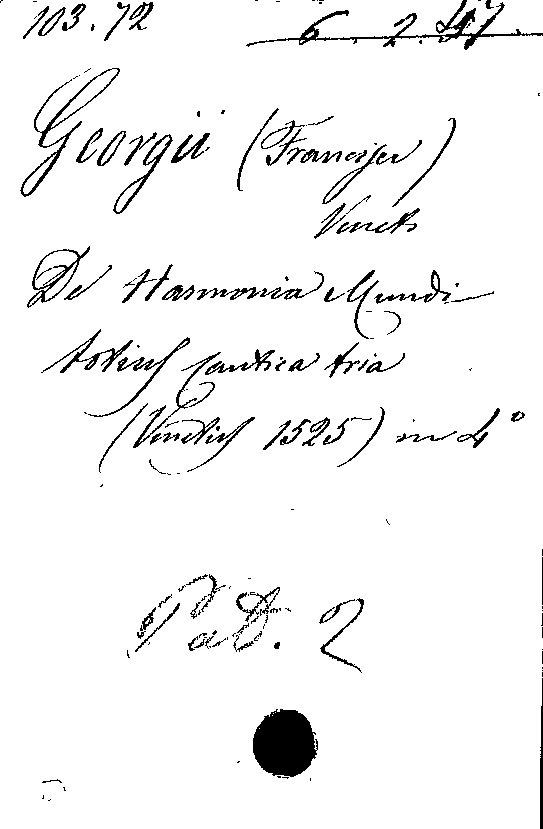 103.72 6. 2. 47.
Georgii (Francisci)
Veneti
De Harmonia Mundi
totius cantica tria
(Venetiis 1525) in 4°
Pad. 2